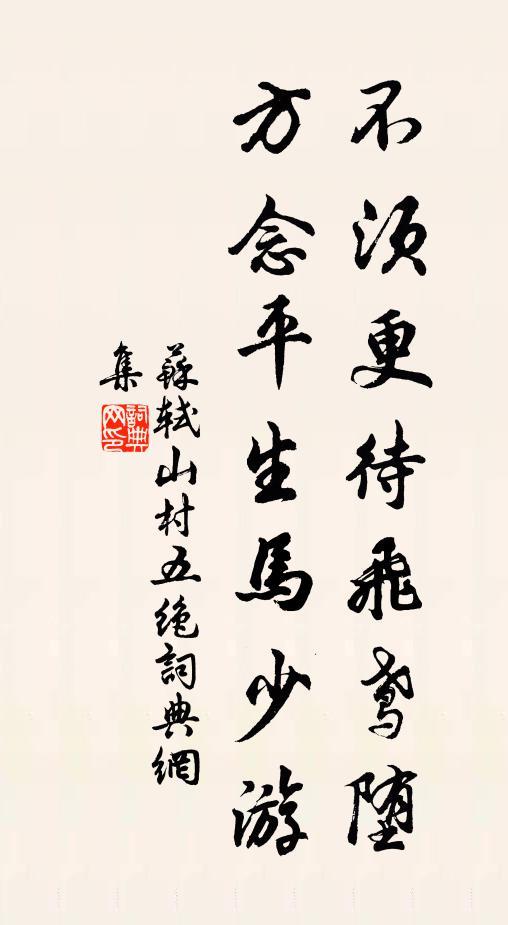 不須更待飛鳶堕
方念平生馬少游
蘇軾山村五絶詞典網
集
詞典
网印